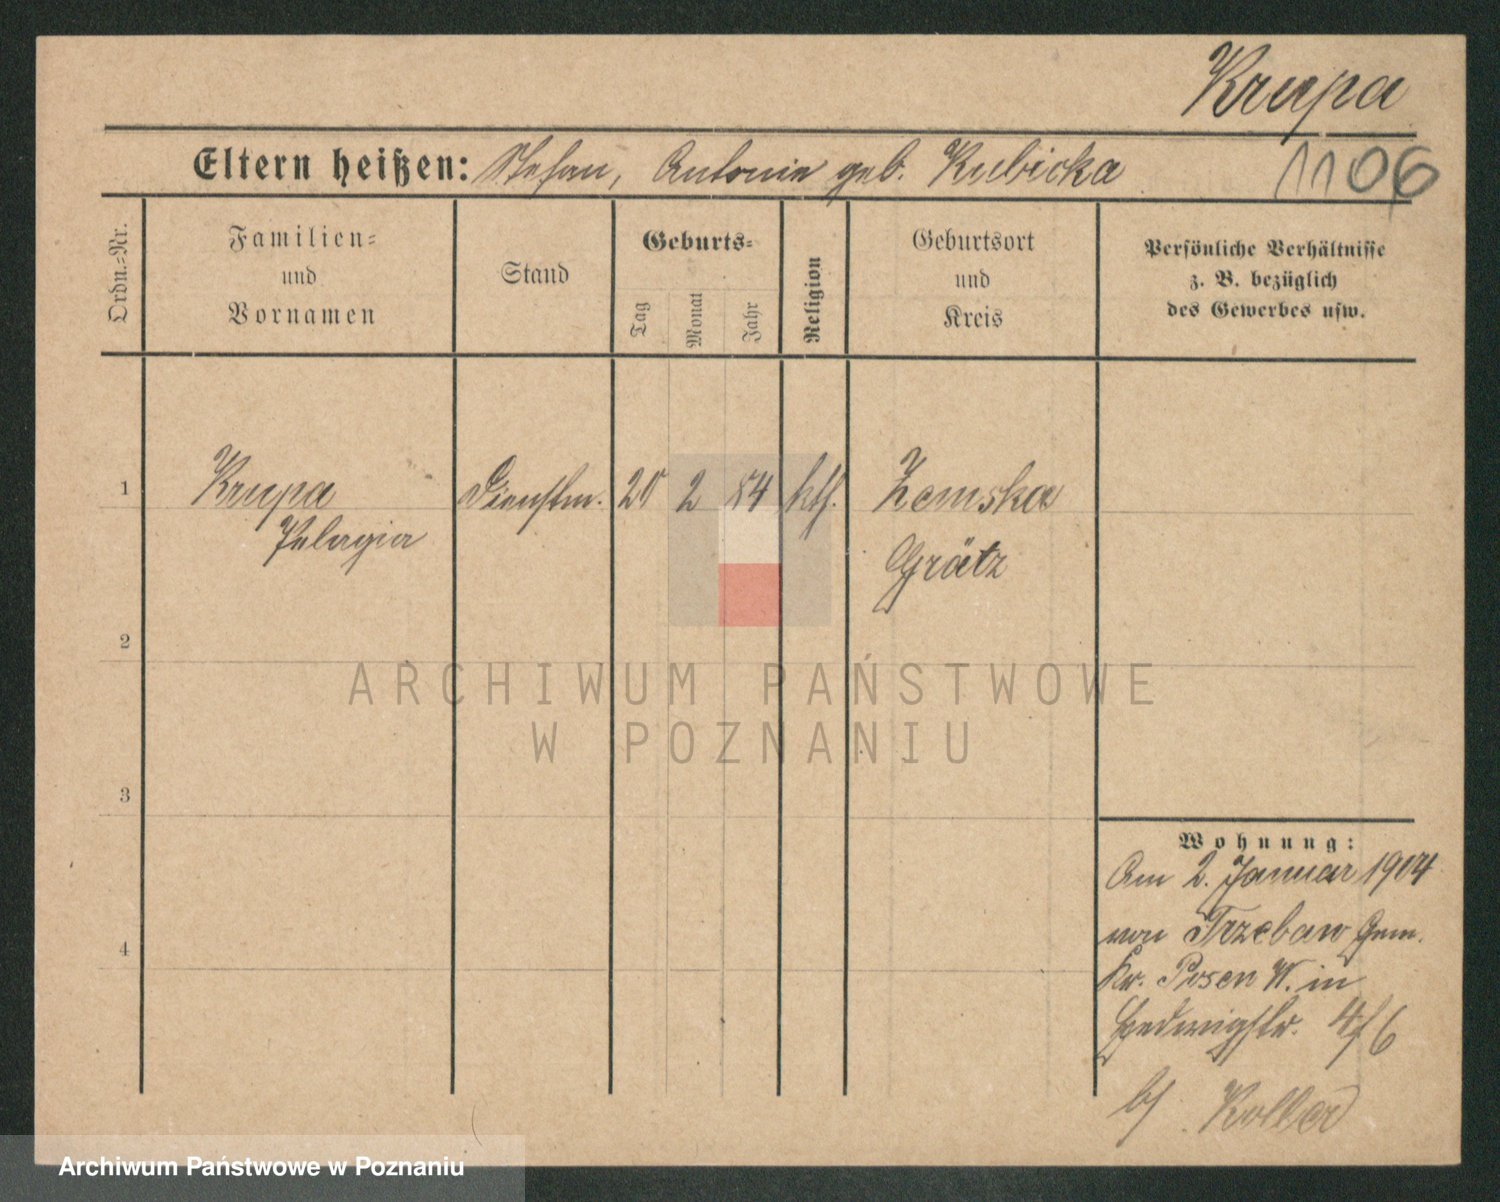 Krupa
Eltern heißen: Stefan, Antonie geb. Kubicka
1106
Ordn.-Nr.
Familien-
und
Vornamen
Stand
Geburts-
Tag
Monat
Jahr
Religion
Geburtsort
und
Kreis
Persönliche Verhältnisse
z. B. bezüglich
des Gewerbes usw.
1
Krupa
Pelagia
Dienstm.
20
2
84
kth.
Zemsko
Grätz
2
3
4
Wohnung:
Am 2. Januar 1904
von Trzebaw Gem.
Kr. Posen W. in
Hedwigstr. 4/6
b/ Koller
ARCHIWUM PAŃSTWOWE
W POZNANIU
Archiwum Państwowe w Poznaniu